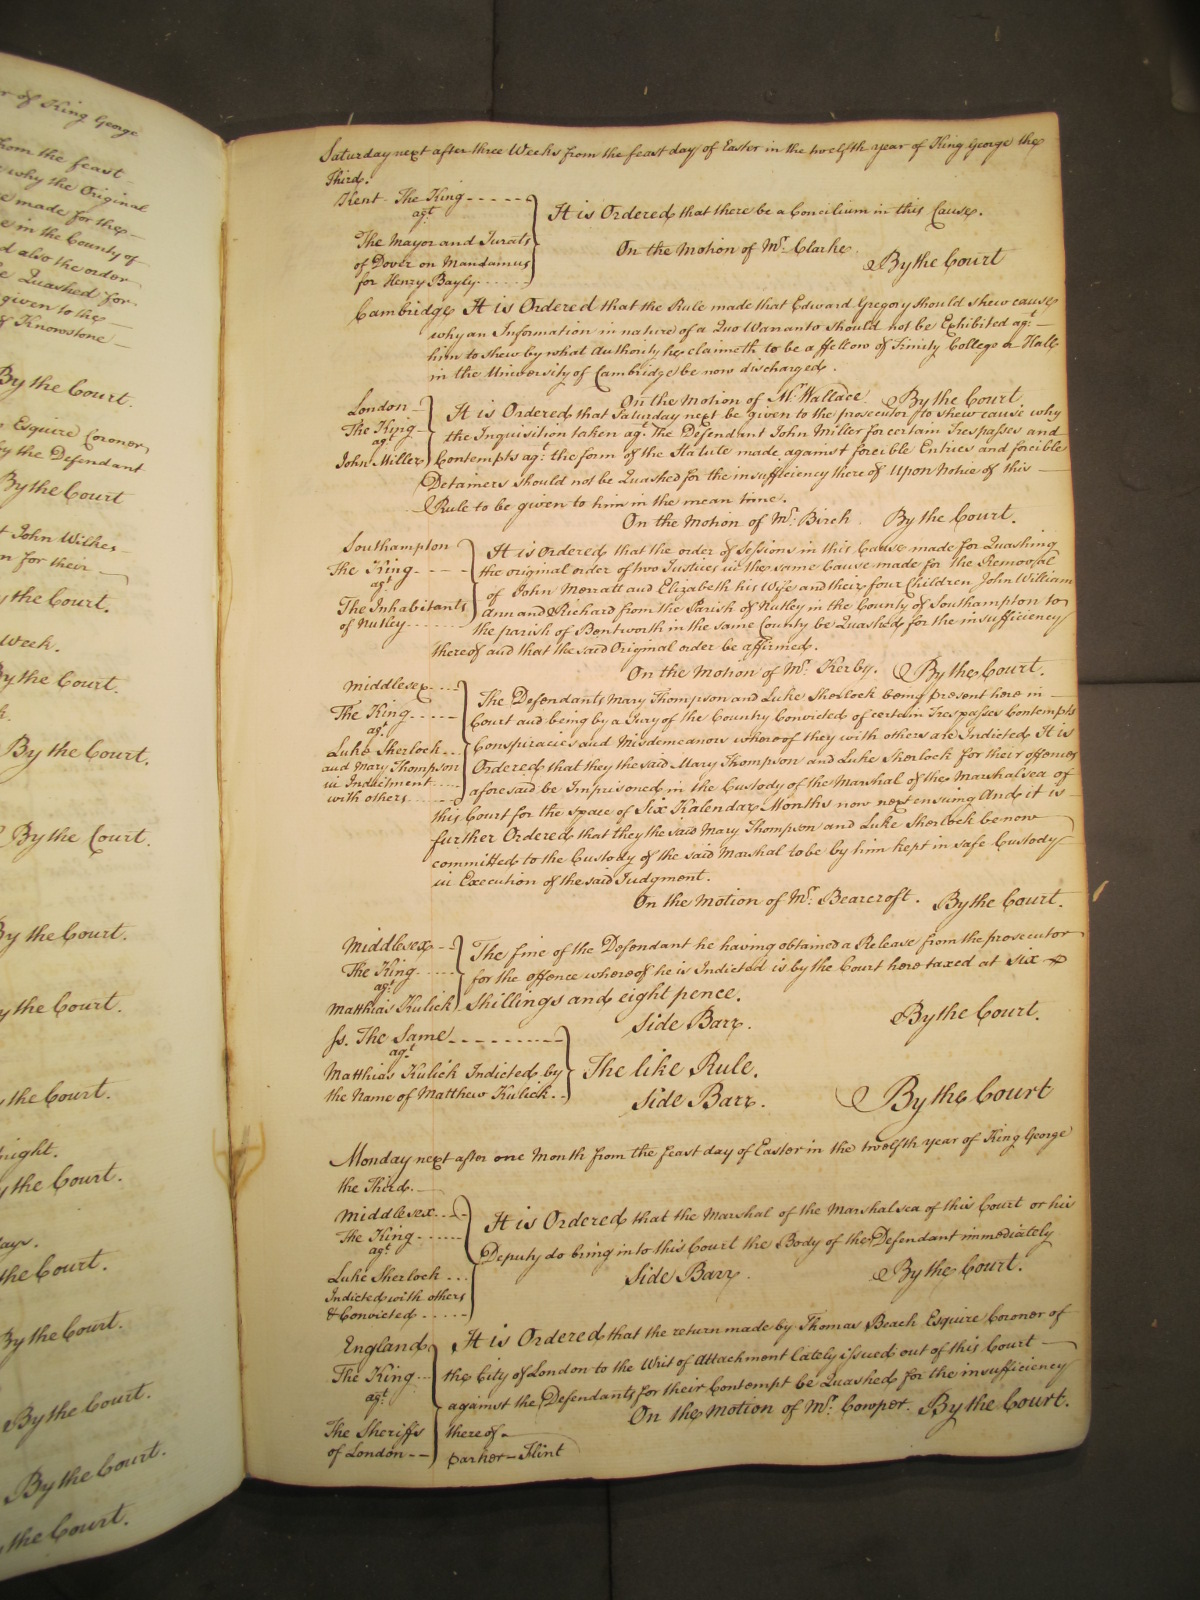 r of King George
from the feast
why the Original
e made for the
e in the County of
d also the order
e Quashed for
given to the
of Knowstone
By the Court.
Esquire Coroner
by the Defendant
By the Court
t John Wilkes
on for their
y the Court.
Week.
By the Court.
By the Court.
By the Court.
By the Court.
y the Court.
y the Court.
night.
y the Court.
days.
the Court.
By the Court.
By the Court.
By the Court.
the Court.
Saturday next after three Weeks from the feast day of Easter in the twelfth year of King George the
Third.
Kent The King
agt
The Mayor and Jurats
of Dover on Mandamus
for Henry Bayly
It is Ordered that there be a Concilium in this Cause.
On the Motion of Mr. Clarke
By the Court
Cambridge It is Ordered that the Rule made that Edward Gregory should shew cause
why an Information in nature of a Quo Warranto should not be Exhibited agt.
him to shew by what Authority he claimeth to be a ffellow of Trinity College or Hall
in the University of Cambridge be now discharged.
On the Motion of Mr. Wallace By the Court.
London
The King
agt
John Miller
It is Ordered that Saturday next be given to the prosecutor to shew cause why
the Inquisition taken agt. The Defendant John Miller for certain Trespasses and
Contempts agt. the form of the Statute made against forcible Entries and forcible
Detainers should not be Quashed for the insufficiency thereof Upon Notice of this
Rule to be given to him in the mean time.
On the Motion of Mr. Birch By the Court.
Southampton
The King
agt
The Inhabitants
of Nutley
It is ordered that the order of Sessions in this Cause made for Quashing
the original order of two Justices in the same Cause made for the Removal
of John Merratt and Elizabeth his Wife and their four Children John William
Ann and Richard from the Parish of Nutley in the County of Southampton to
the parish of Bentworth in the same County be Quashed for the insufficiency
thereof and that the said Original order be affirmed.
On the Motion of Mr. Kerby. By the Court.
Middlesex
The King
agt
Luke Sherlock
and Mary Thompson
in Indictment
with others
The Defendants Mary Thompson and Luke Sherlock being present here in
Court and being by a Jury of the Country Convicted of certain Trespasses Contempts
Conspiracies and Misdemeanors whereof they with others are Indicted It is
Ordered that they the said Mary Thompson and Luke Sherlock for their offences
aforesaid be Imprisoned in the Custody of the Marshal of the Marshalsea of
this Court for the space of Six Kalendar Months now next ensuing And it is
further Ordered that they the said Mary Thompson and Luke Sherlock be now
committed to the Custody of the said Marshal to be by him kept in safe Custody
in Execution of the said Judgment.
On the Motion of Mr. Bearcroft. By the Court.
Middlesex
The King
agt
Matthias Kulick
The fine of the Defendant he having obtained a Release from the prosecutor
for the offence whereof he is Indicted is by the Court here taxed at six
shillings and eight pence.
Side Barr. By the Court.
ss. The Same
agt
Matthias Kulick Indicted by
the Name of Matthew Kulick
The like Rule.
Side Barr. By the Court
Monday next after one Month from the feast day of Easter in the twelfth year of King George
the Third.
Middlesex
The King
agt
Luke Sherlock
Indicted with others
& Convicted
It is Ordered that the Marshal of the Marshalsea of this Court or his
Deputy do bring into this Court the Body of the Defendant immediately
Side Barr. By the Court.
England
The King
agt
The Sheriffs
of London
It is Ordered that the return made by Thomas Beach Esquire Coroner of
the City of London to the Writ of Attachment lately issued out of this Court
against the Defendants for their Contempt be Quashed for the insufficiency
On the Motion of Mr. Cowper. By the Court.
thereof
parker - Flint